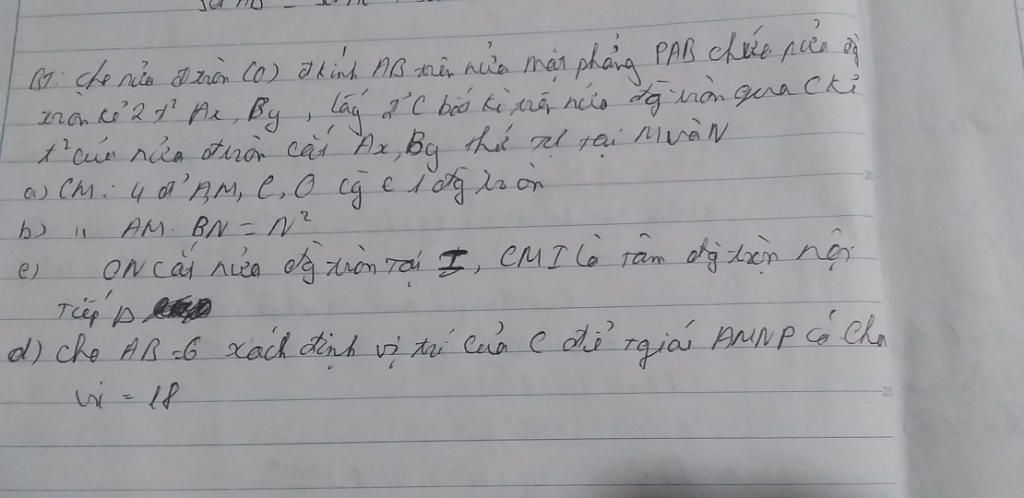 BT: Cho nửa đ tròn (O) đ kính AB trên nửa mặt phẳng PAB chứa nửa đg
tròn kẻ 2 t² Ax, By, lấy đ' C bất kì trên nửa đg tròn qua C kẻ
t² của nửa đ tròn cắt Ax, By thứ tự tại M và N
a) CM: 4 đ' A, M, C, O cg ∈ 1 đg tròn
b) 11 AM. BN = N²
c) ON cắt nửa đg tròn tại I, CM I là tâm đg tròn nội
tiếp Δ
d) Cho AB = 6 xách định vị trí của C để tgiác AMNP có Chu
vi = 18